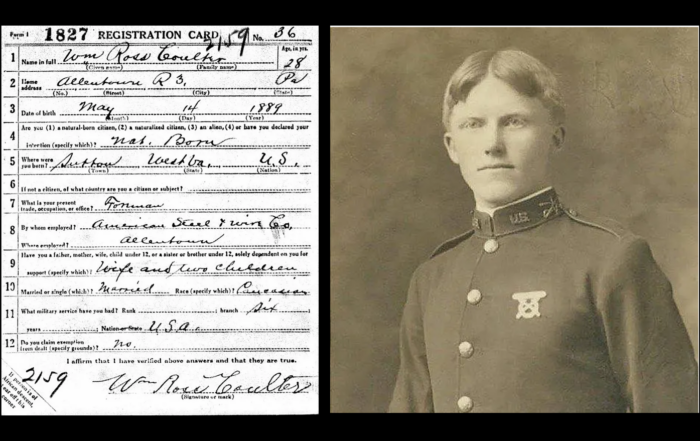 Form 1 1827 REGISTRATION CARD 2159 No. 36
1 Name in full Wm Ross Coulter Age, in yrs. 28
(Given name) (Family name)
2 Home address Allentown R 3, Pa
(No.) (Street) (City) (State)
3 Date of birth May 14 1889
(Month) (Day) (Year)
4 Are you (1) a natural-born citizen, (2) a naturalized citizen, (3) an alien, (4) or have you declared your
intention (specify which)? Nat. Born
5 Where were you born? Sutton West Va. U.S.
(Town) (State) (Nation)
6 If not a citizen, of what country are you a citizen or subject?
7 What is your present trade, occupation, or office? Forman
8 By whom employed? American Steel & Wire Co,
Where employed? Allentown
9 Have you a father, mother, wife, child under 12, or a sister or brother under 12, solely dependent on you for
support (specify which)? Wife and two children
10 Married or single (which)? Married Race (specify which)? Caucasian
11 What military service have you had? Rank branch Six
years Nation U.S.A.
12 Do you claim exemption from draft (specify grounds)? No
I affirm that I have verified above answers and that they are true.
2159 Wm Ross Coulter
(Signature or mark)
U.S.